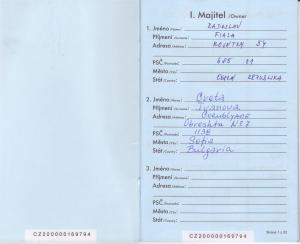 I. Majitel /Owner
1. Jméno /Name/ RADOSLAV
Příjmení /Surname/ FIALA
Adresa /Address/ 54
PSČ /Postcode/ 685 01
Město /City/
Stát /Country/ ČESKÁ REPUBLIKA
2. Jméno /Name/ Cveta
Příjmení /Surname/ Ivanova
Adresa /Address/
Oboreshte N:7
PSČ /Postcode/ 1138
Město /City/ Sofia
Stát /Country/ Bulgaria
3. Jméno /Name/
Příjmení /Surname/
Adresa /Address/
PSČ /Postcode/
Město /City/
Stát /Country/
CZ2000000169794
CZ2000000169794
Strana 1 z 32